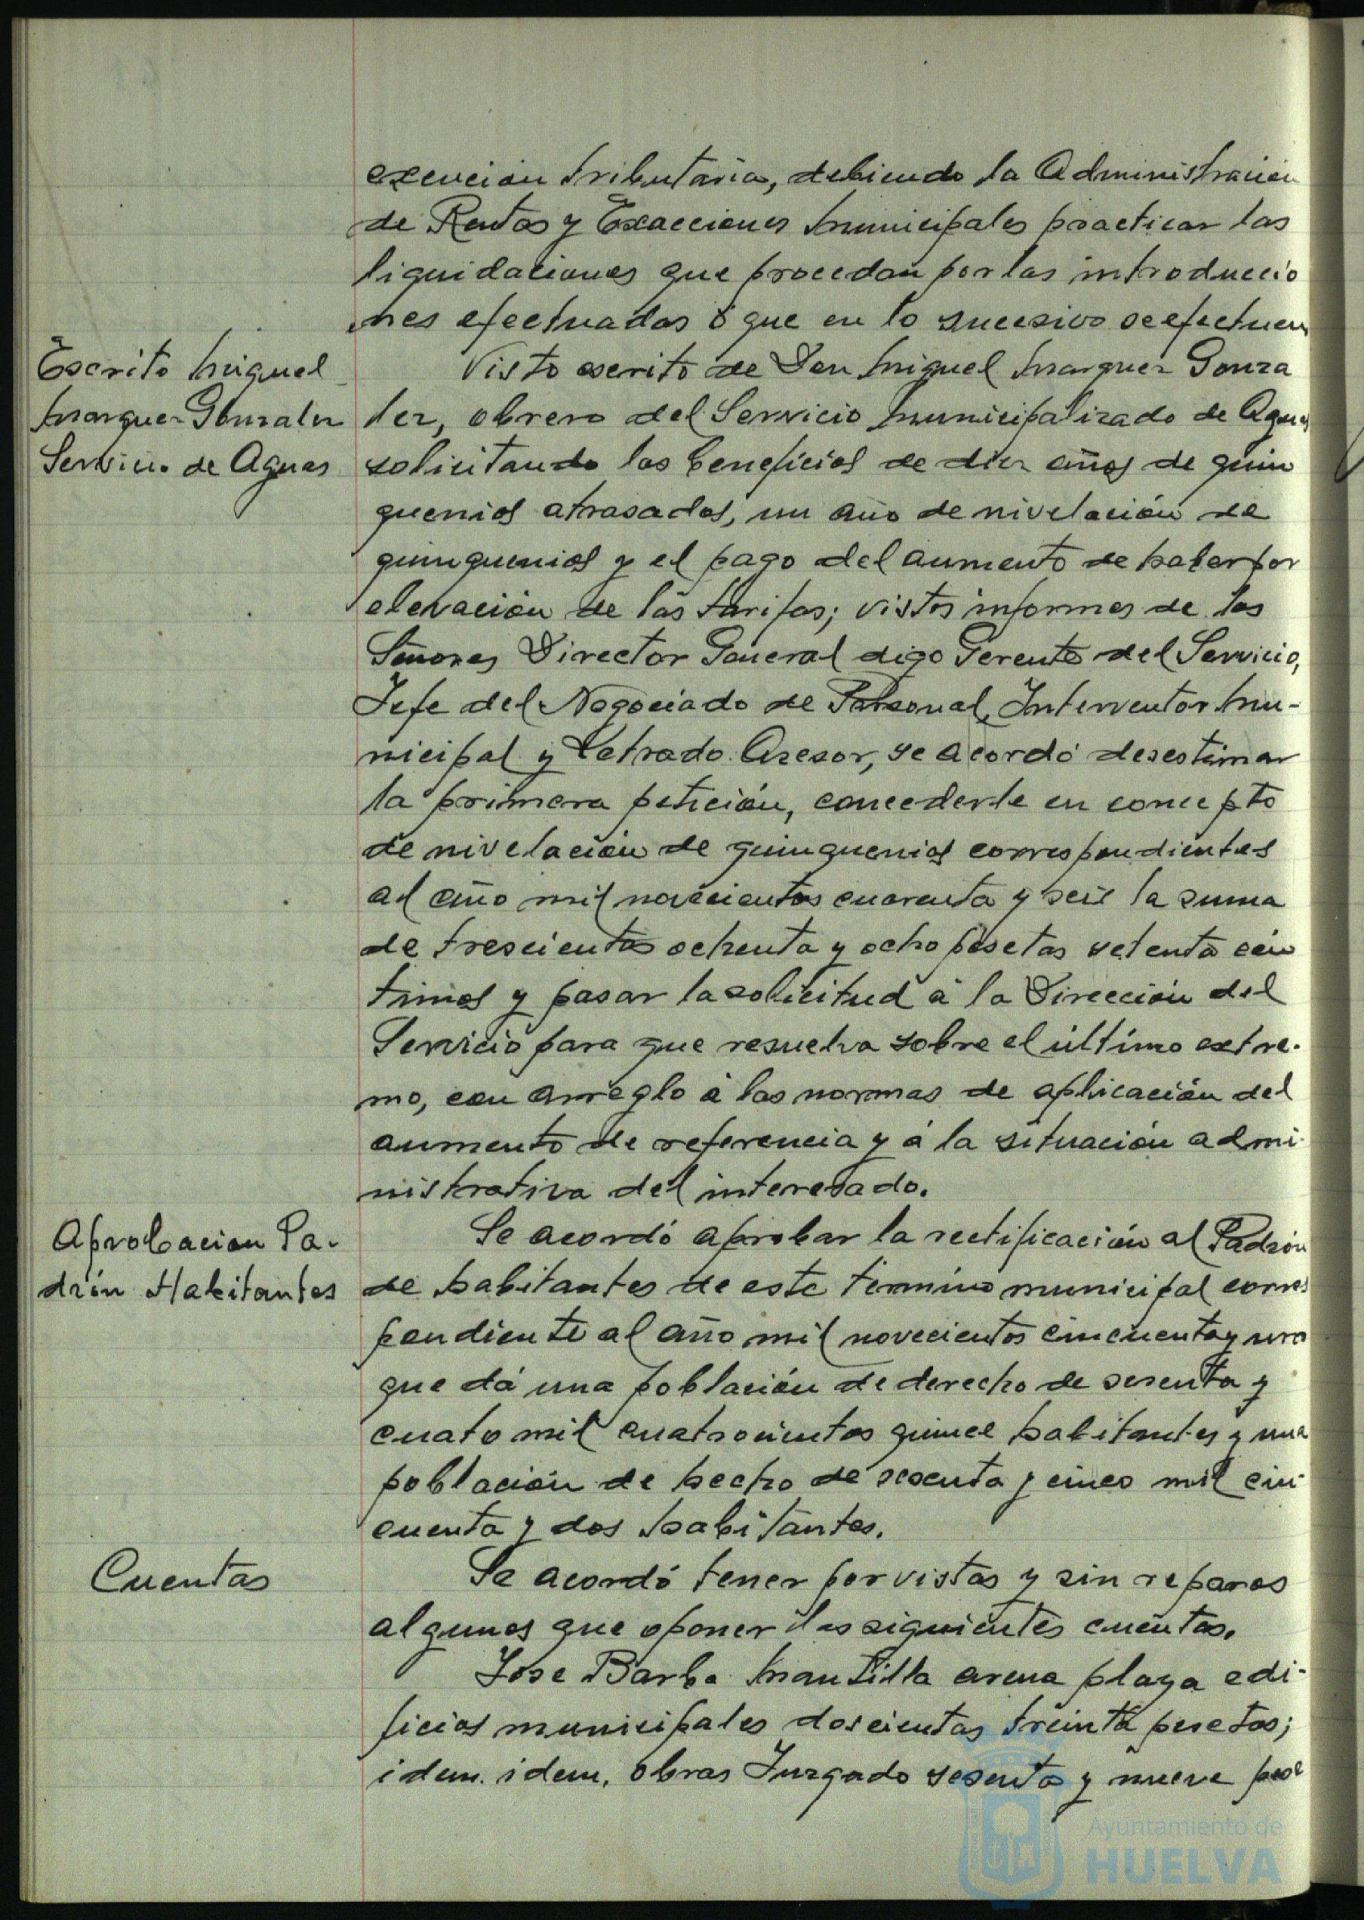 exencion tributaria, debiendo la Administración
de Rentas y Exacciones Municipales practicar las
liquidaciones que procedan por las introduccio
nes efectuadas ó que en lo sucesivo se efectuen
Escrito Miguel
Marquez Gonzalez
Servicio de Aguas
Visto escrito de Don Miguel Marquez Gonza
lez, obrero del Servicio Municipalizado de Aguas
solicitando los beneficios de diez años de quin
quenios atrasados, un año de nivelación de
quinquenios y el pago del aumento de haber por
elevación de las tarifas; vistos informes de los
Señores Director General digo Gerente del Servicio,
Jefe del Negociado de Personal, Interventor Mu-
nicipal y Letrado Asesor, se acordó desestimar
la primera petición, concederle en concepto
de nivelación de quinquenios correspondientes
al año mil novecientos cuarenta y seis la suma
de trescientas ochenta y ocho pesetas setenta cén
timos y pasar la solicitud á la Dirección del
Servicio para que resuelva sobre el último extre-
mo, con arreglo á las normas de aplicación del
aumento de referencia y á la situación admi-
nistrativa del interesado.
Aprobacion Pa-
drón Habitantes
Se acordó aprobar la rectificación al Padrón
de habitantes de este término municipal corres
pondiente al año mil novecientos cincuenta y uno
que dá una población de derecho de sesenta y
cuato mil cuatrocientos quince habitantes y una
población de hecho de sesenta y cinco mil cin-
cuenta y dos habitantes.
Cuentas
Se acordó tener por vistas y sin reparos
algunos que oponer las siguientes cuentas.
Jose Barba Mantilla arena playa edi-
ficios municipales doscientas treinta pesetas;
idem. idem. obras Juzgado sesenta y nueve pese
Ayuntamiento de
HUELVA